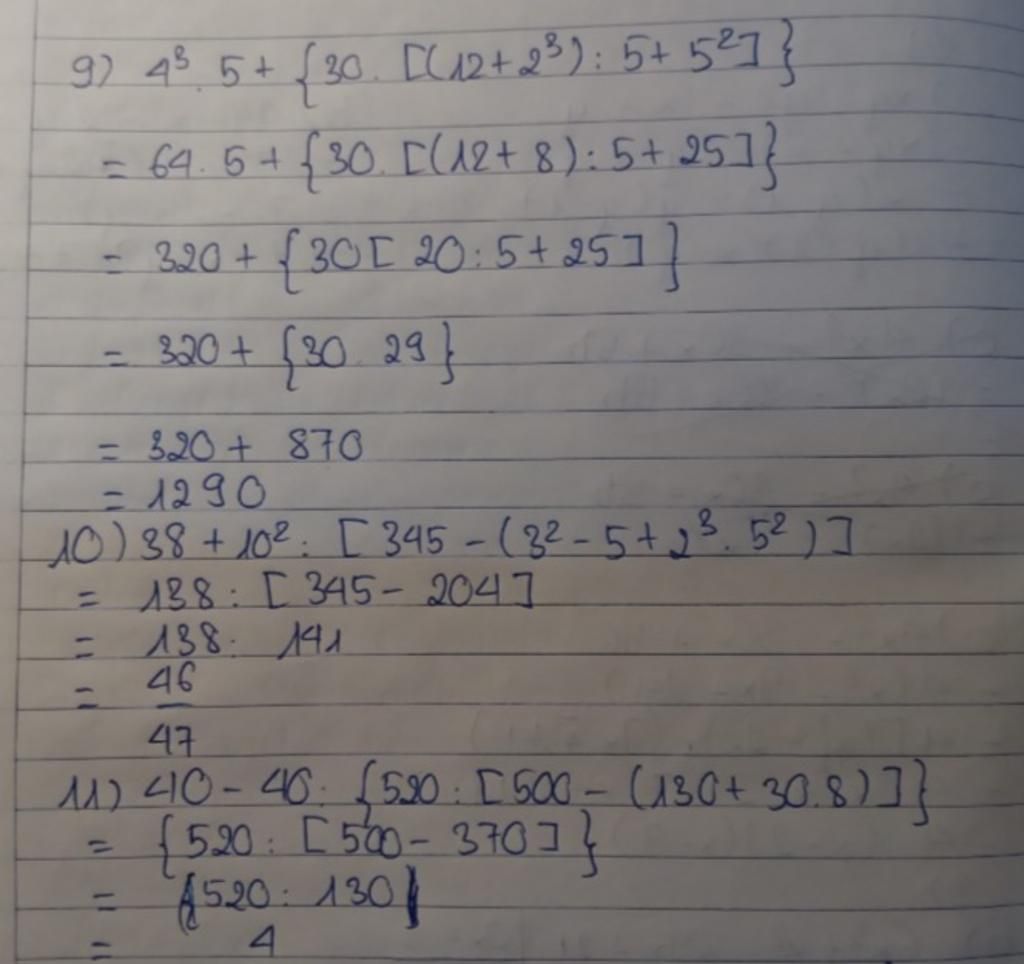 9) 4³. 5 + {30. [(12 + 2³) : 5 + 5²]}
= 64. 5 + {30. [(12 + 8) : 5 + 25]}
= 320 + {30 [ 20 : 5 + 25 ] }
= 320 + {30. 29}
= 320 + 870
= 1290
10) 38 + 10² : [ 345 - (3² - 5 + 2³. 5² ) ]
= 138 : [ 345 - 204 ]
= 138 : 141
= 46
47
11) 40 - 40 : {520 : [500 - (130 + 30.8) ]}
= {520 : [500 - 370 ] }
= (520 : 130)
= 4